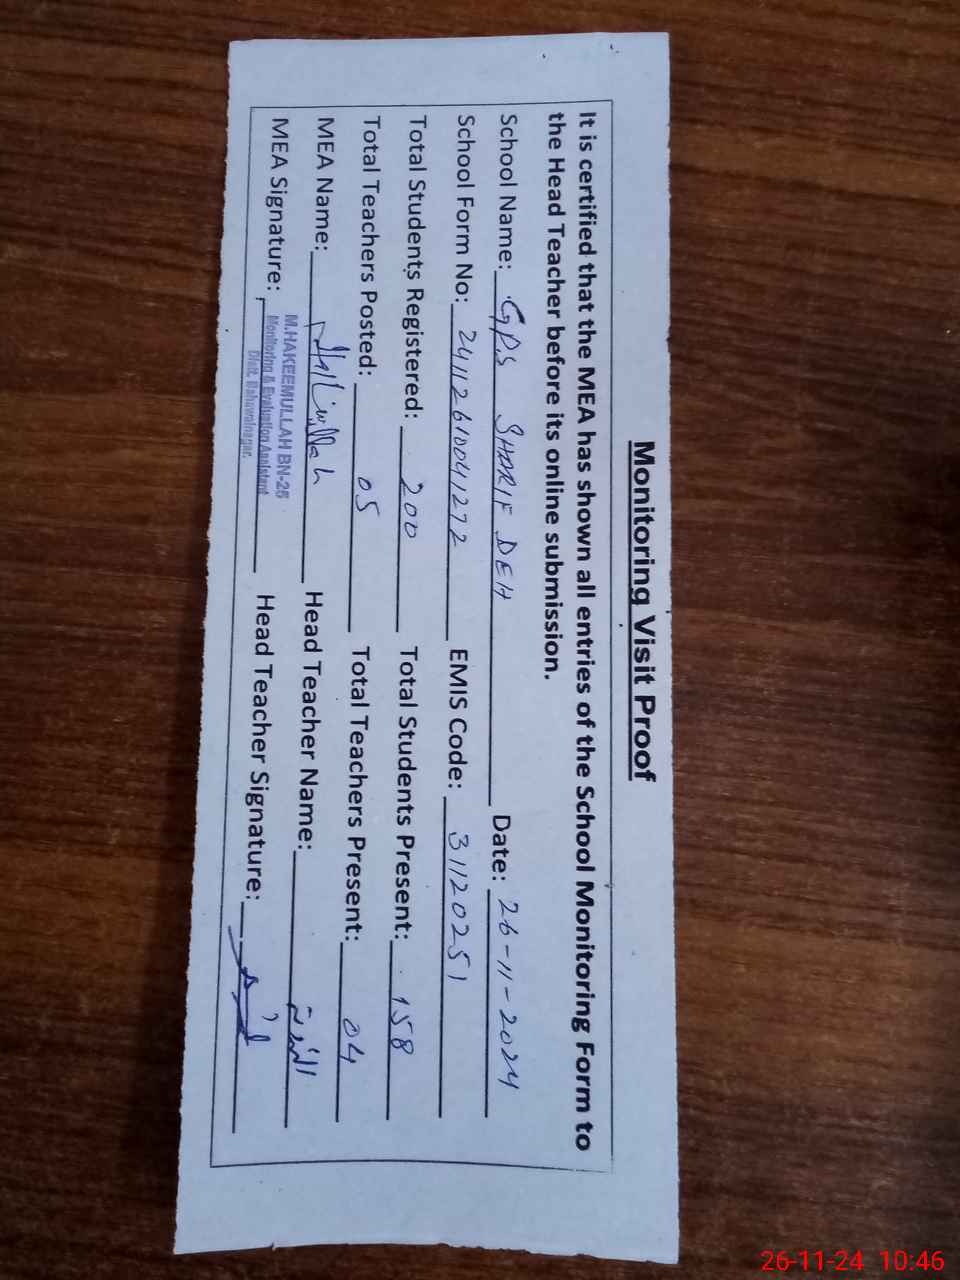 Monitoring Visit Proof
It is certified that the MEA has shown all entries of the School Monitoring Form to
the Head Teacher before its online submission.
School Name: G.P.S SHARIF DEH Date: 26-11-2024
School Form No: 24112610041272 EMIS Code: 31120251
Total Students Registered: 200 Total Students Present: 158
Total Teachers Posted: 05 Total Teachers Present: 04
MEA Name: Head Teacher Name:
MEA Signature: Head Teacher Signature:
M.HAKEEMULLAH BN-25
Monitoring & Evaluation Assistant
Distt. Bahawalnagar.
26-11-24 10:46